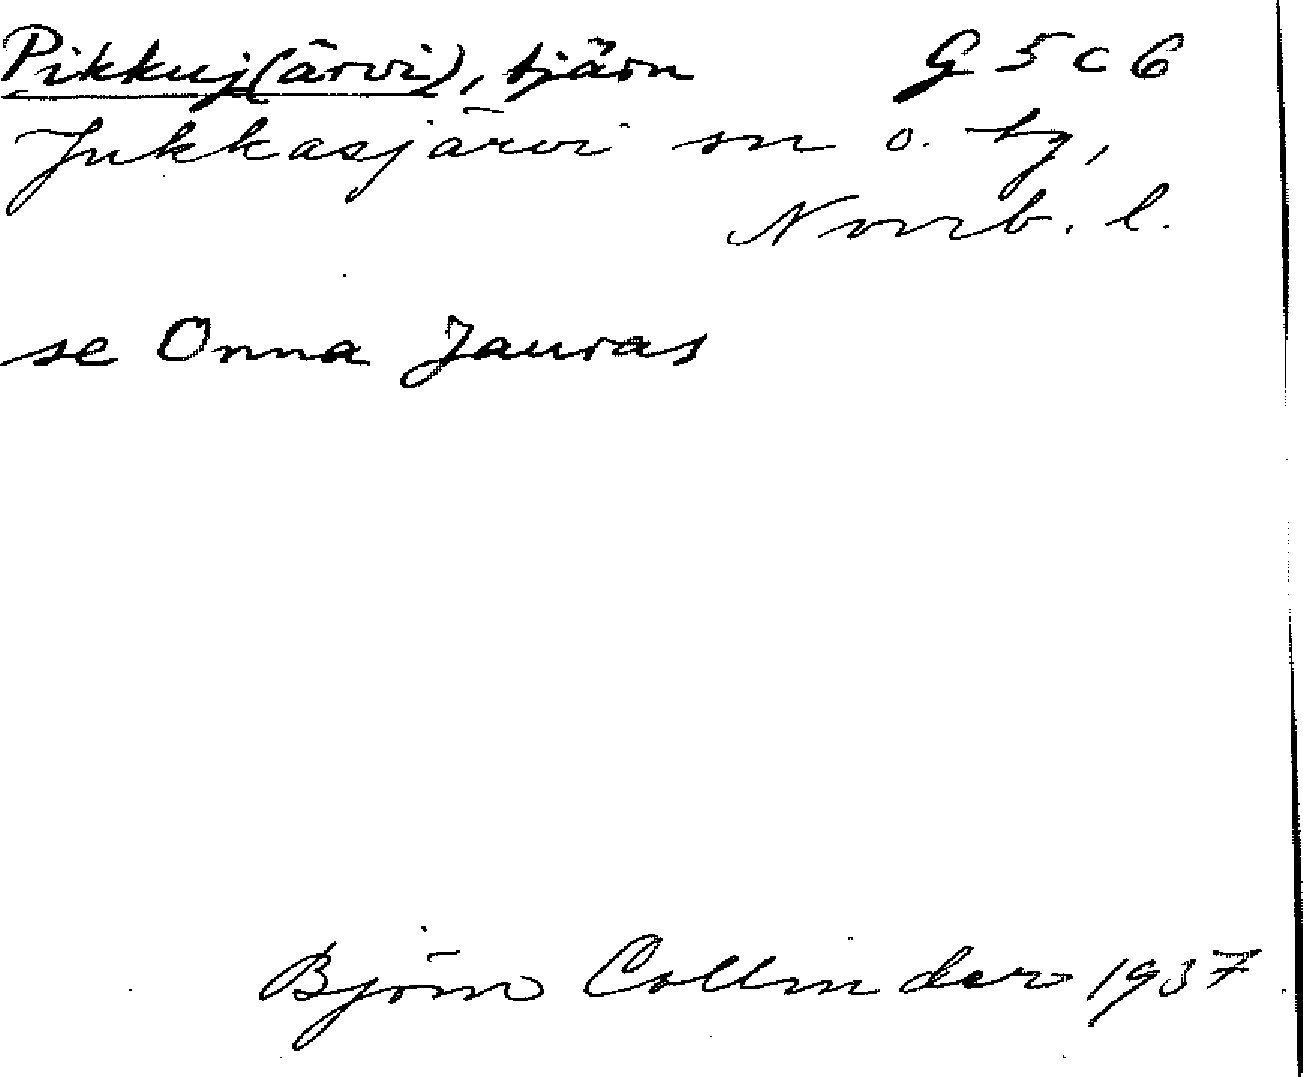 Pikkuj(ärvi), tjärn G 5 c 6
Jukkasjärvi sn o. tg,
Norrb. l.
se Onna Jauras
Björn Collinder 1937